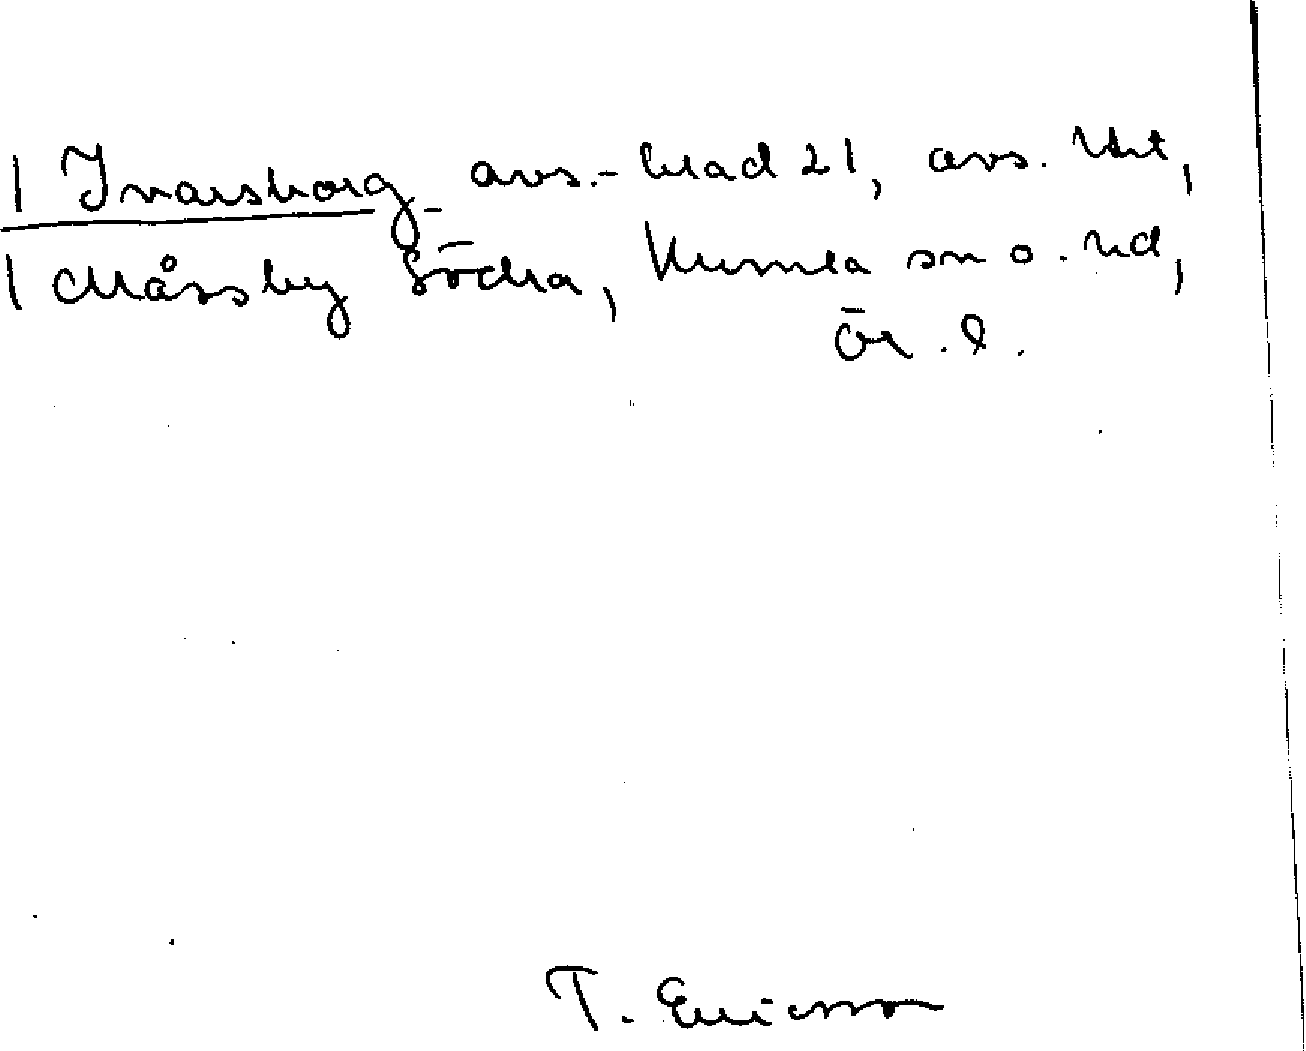 1 Ivarsborg avs.-blad 21, avs. lht,
1 Måssby Södra, Kumla sn o. hd,
Ör. l.
T. Ericsson